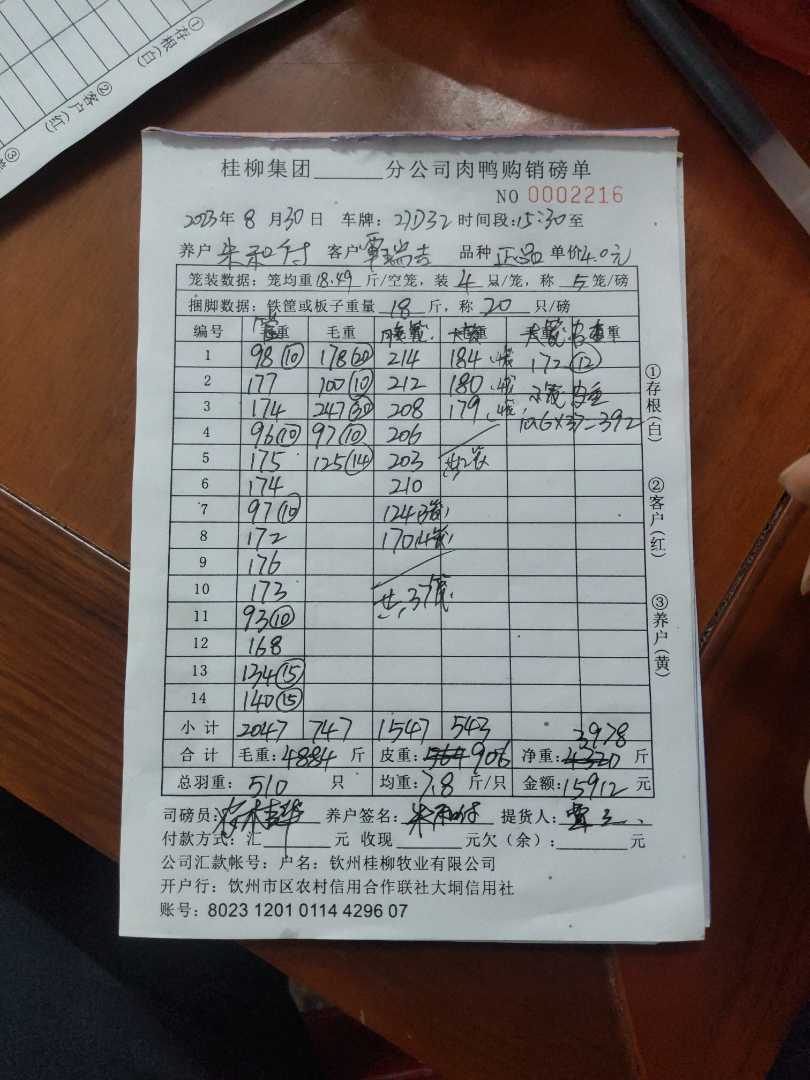 ①存根(白)
②客户(红)
③
桂柳集团______分公司肉鸭购销磅单
NO 0002216
2023年 8 月 30 日 车牌: 27D32 时间段: 15:30 至
养户 客户 覃瑞吉 品种 正品 单价 4.0元
笼装数据: 笼均重 18.49 斤/空笼, 装 4 只/笼, 称 5 笼/磅
捆脚数据: 铁筐或板子重量 18 斤, 称 20 只/磅
编号 毛重 毛重
1 98(10) 178(20) 214 184 172(12)
2 177 100(10) 212 180
3 174 247(30) 208 179
4 96(10) 97(10) 206
5 175 125(14) 203
6 174 210
7 97(10) 124
8 172 170
9 176
10 173 共,37笼
11 93(10)
12 168
13 134(15)
14 140(15)
小计 2047 747 1547 543 3978
合计 毛重: 4884 斤 皮重: 564 906 净重: 4320 斤
总羽重: 510 只 均重: 7.8 斤/只 金额: 15912 元
司磅员: 养户签名: 提货人:
付款方式: 汇______元 收现______元欠(余):______元
公司汇款帐号: 户名: 钦州桂柳牧业有限公司
开户行: 钦州市区农村信用合作联社大垌信用社
账号: 8023 1201 0114 4296 07
①存根(白)
②客户(红)
③养户(黄)